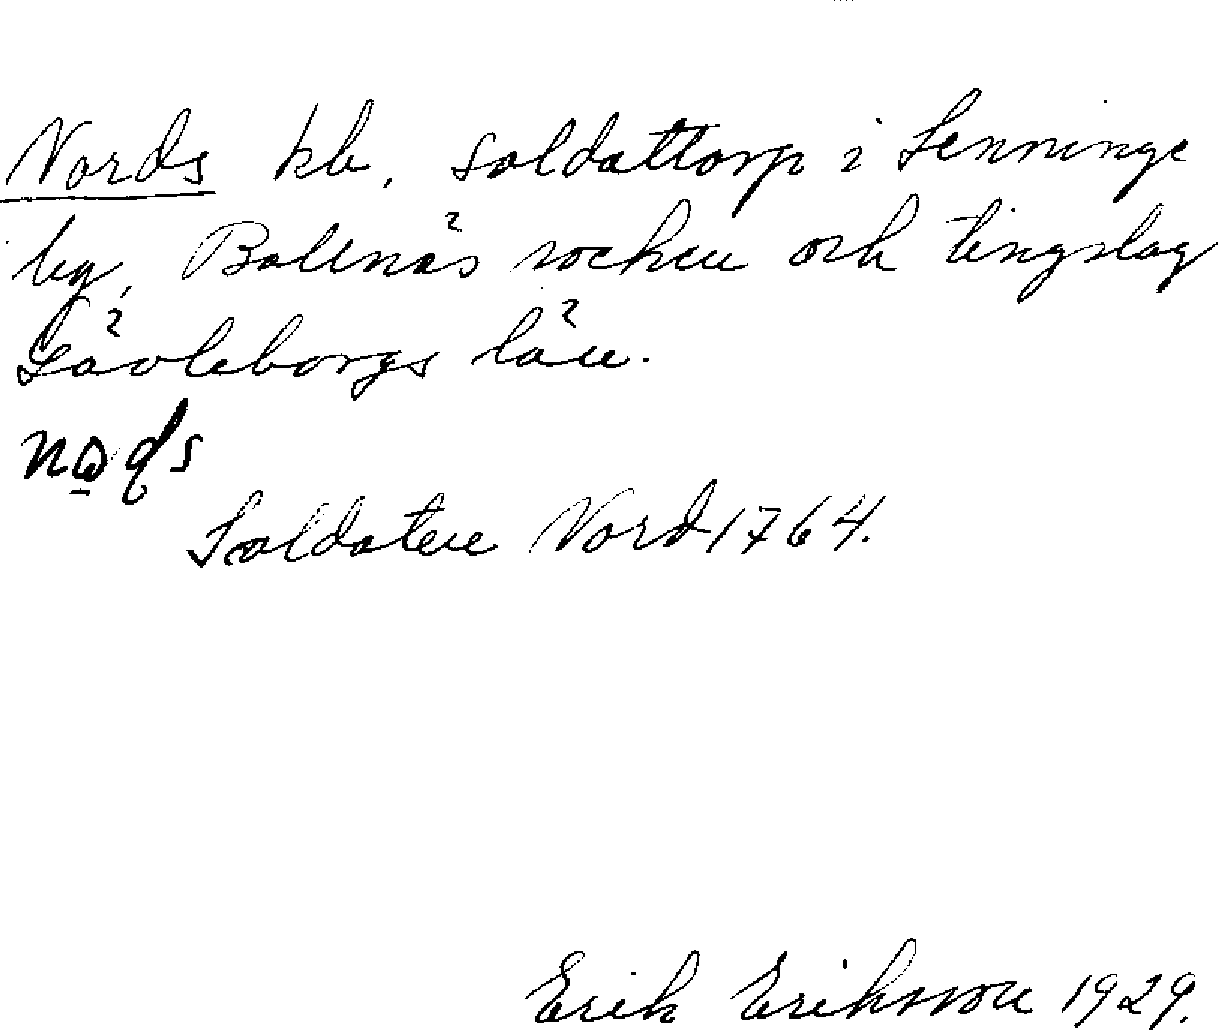 Nords kb. soldattorp i Senninge
by, Bollnäs socken och tingslag
Gävleborgs län.
Soldaten Nord 1764.
Erik Eriksson 1929.